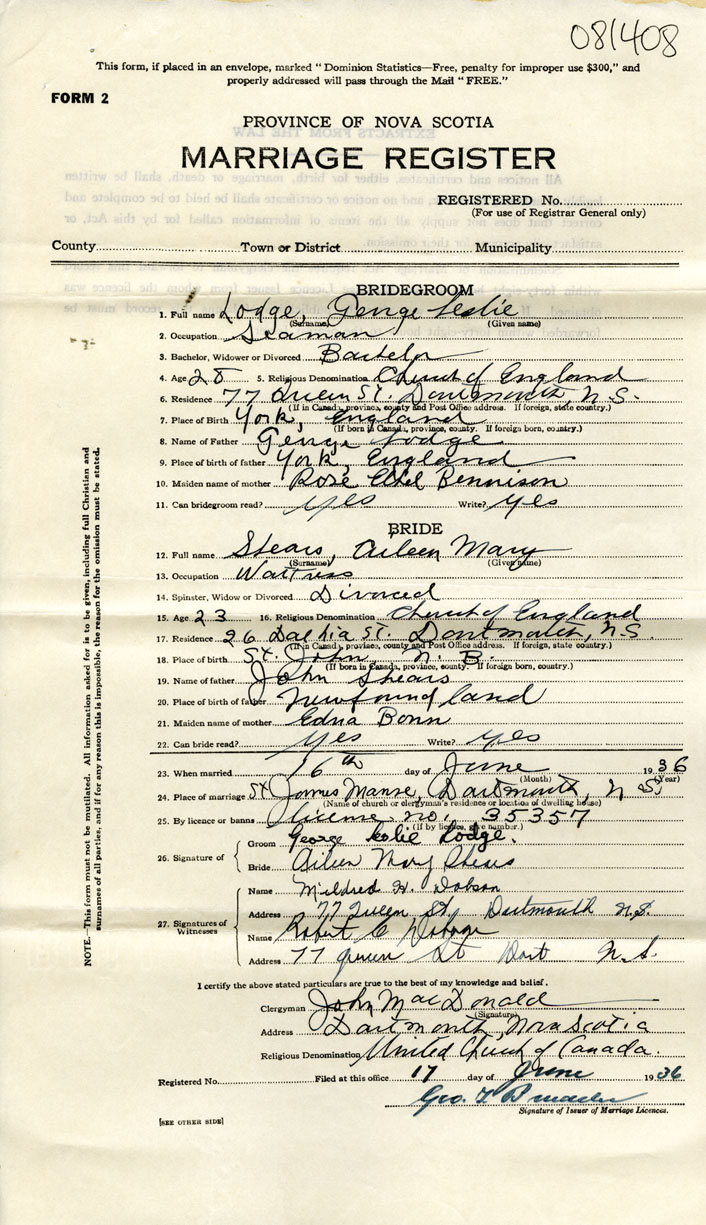 081408
This form, if placed in an envelope, marked "Dominion Statistics—Free, penalty for improper use $300," and
properly addressed will pass through the Mail "FREE."
FORM 2
PROVINCE OF NOVA SCOTIA
MARRIAGE REGISTER
REGISTERED No.
(For use of Registrar General only)
County Town or District Municipality
BRIDEGROOM
1. Full name Lodge, George Leslie
(Surname) (Given name)
2. Occupation Seaman
3. Bachelor, Widower or Divorced Bachelor
4. Age 28 5. Religious Denomination Church of England
6. Residence 77 Queen St. Dartmouth, N.S.
(If in Canada, province, county and Post Office address. If foreign, state country.)
7. Place of Birth York, England
(If born in Canada, province, county. If foreign born, country.)
8. Name of Father George Lodge
9. Place of birth of father York, England
10. Maiden name of mother Rose Ethel Bennison
11. Can bridegroom read? yes Write? yes
BRIDE
12. Full name Shears, Aileen Mary
(Surname) (Given name)
13. Occupation Waitress
14. Spinster, Widow or Divorced Divorced
15. Age 23 16. Religious Denomination Church of England
17. Residence 26 Dahlia St. Dartmouth, N.S.
(If in Canada, province, county and Post Office address. If foreign, state country.)
18. Place of birth St. John N. B.
(If born in Canada, province, county. If foreign born, country.)
19. Name of father John Shears
20. Place of birth of father Newfoundland
21. Maiden name of mother Edna Bonn
22. Can bride read? yes Write? yes
23. When married 16th day of June 1936
(Month) (Year)
24. Place of marriage St James Manse, Dartmouth, N S.
(Name of church or clergyman's residence or location of dwelling house)
25. By licence or banns license no. 35357
(If by licence, give number.)
26. Signature of
Groom George Leslie Lodge.
Bride Aileen Mary Shears
27. Signatures of Witnesses
Name Mildred H. Dobson
Address 77 Queen St Dartmouth N.S.
Name Robert C Dobson
Address 77 queen St Dart N.S.
I certify the above stated particulars are true to the best of my knowledge and belief.
Clergyman John MacDonald
(Signature)
Address Dartmouth, Nova Scotia
Religious Denomination United Church of Canada.
Registered No. Filed at this office 17 day of June 1936
Geo.
Signature of Issuer of Marriage Licences.
[SEE OTHER SIDE]
NOTE.—This form must not be mutilated. All information asked for is to be given, including full Christian and
surnames of all parties, and if for any reason this is impossible, the reason for the omission must be stated.